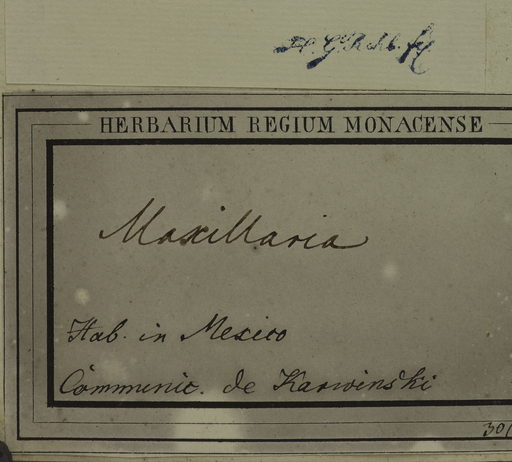 HERBARIUM REGIUM MONACENSE
Maxillaria
Hab. in Mexico
Communic. de Karwinski